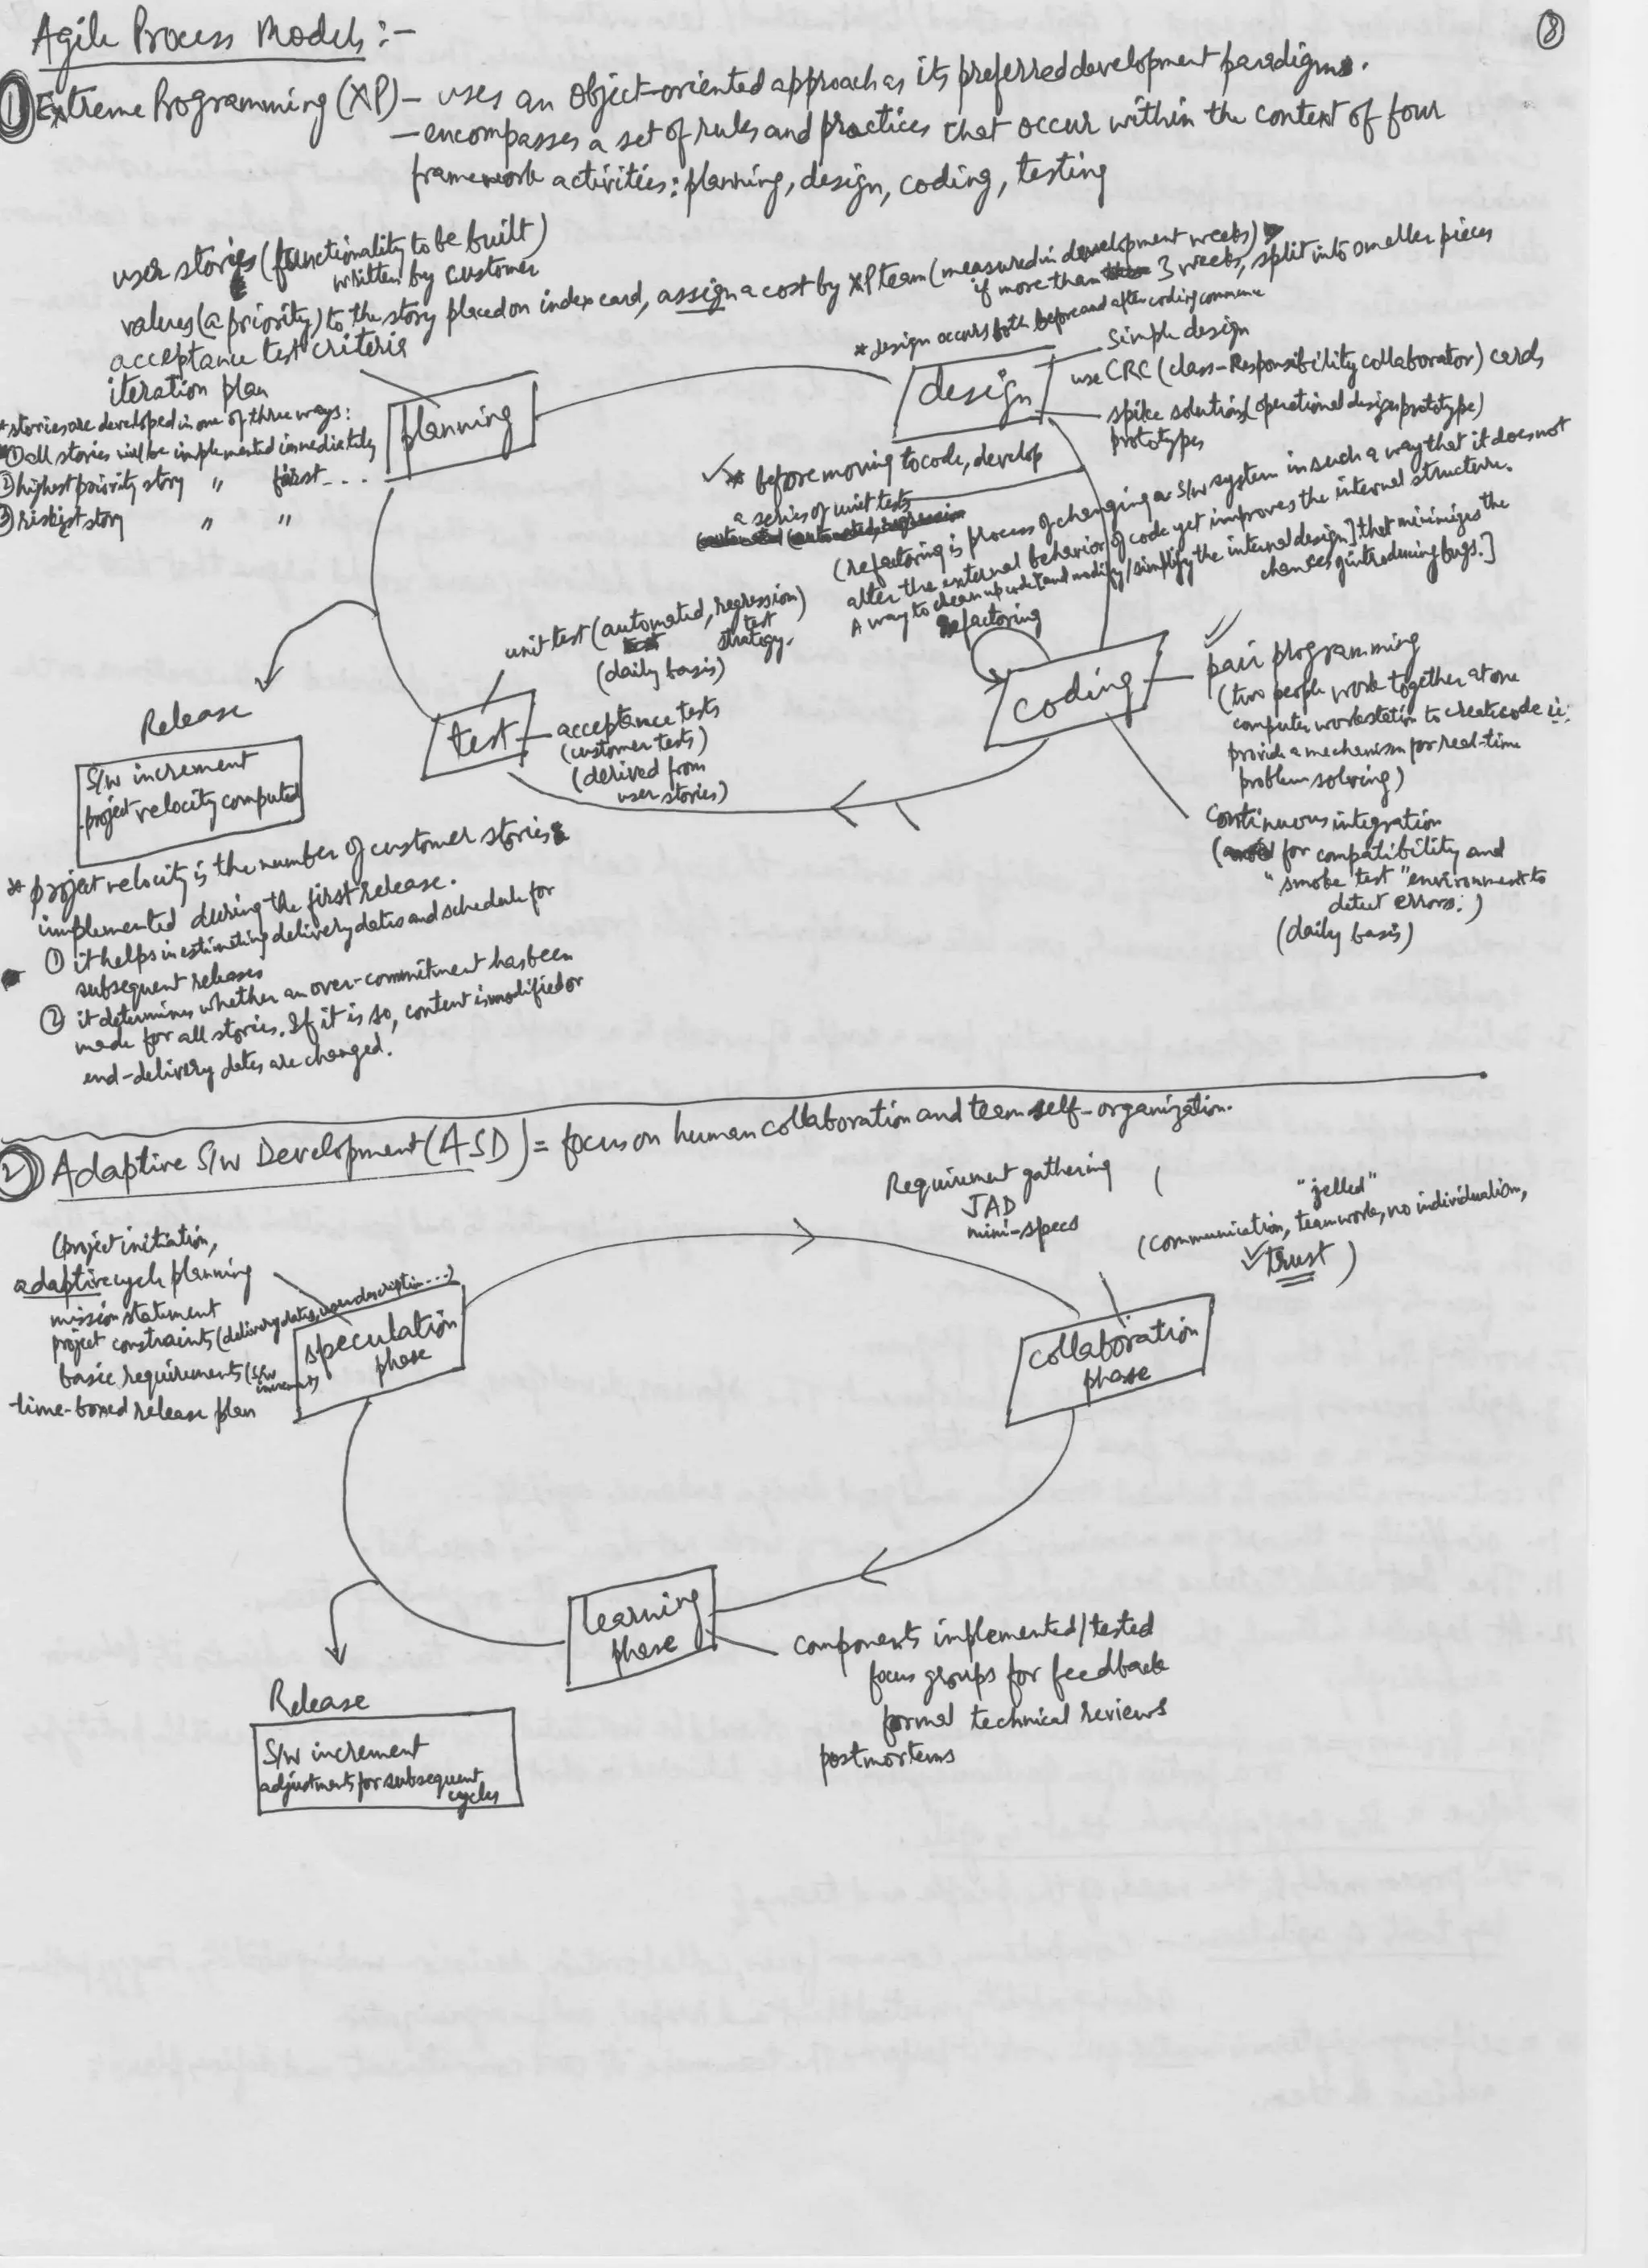 8
Agile Process Models :-
① Extreme Programming (XP) - uses an object-oriented approach as its preferred development paradigm.
- encompasses a set of rules and practices that occur within the context of four
framework activities: planning, design, coding, testing
user stories (functionality to be built)
written by customer
values (a priority) to the story placed on index card, assign a cost by XP team (measured in development weeks)
if more than 3 weeks, split into smaller pieces
acceptance test criteria
iteration plan
* stories are developed in one of three ways:
① all stories will be implemented immediately
② highest priority story " first ...
③ riskiest story " "
planning
* design occurs both before and after coding commence
design
simple design
use CRC (class-Responsibility collaborator) cards
spike solutions (operational design prototype)
prototypes
* before moving to code, develop
a series of unit tests
(refactoring is process of changing a S/W system in such a way that it does not
alter the external behavior of code yet improves the internal structure.
A way to clean up code [and modify/simplify the internal design] that minimizes the
chances of introducing bugs.]
Refactoring
coding
pair programming
(two people work together at one
computer workstation to create code ie:
provide a mechanism for real-time
problem solving)
continuous integration
(for compatibility and
"smoke test" environment to
detect errors.)
(daily basis)
unit test (automated, regression)
test
strategy.
(daily basis)
test
acceptance tests
(customer tests)
(derived from
user stories)
Release
S/W increment
project velocity computed
* project velocity is the number of customer stories
implemented during the first release.
① it helps in estimating delivery dates and schedule for
subsequent releases
② it determines whether an over-commitment has been
made for all stories. If it is so, content is modified or
end-delivery dates are changed.
② Adaptive S/W Development (ASD) = focus on human collaboration and team self-organization.
(project initiation,
adaptive cycle planning
mission statement
project constraints (delivery dates, user description...)
basic requirements (S/W
increments)
time-boxed release plan
speculation
phase
Requirement gathering
JAD
mini-specs
"jelled"
(communication, teamwork, no individualism,
trust)
collaboration
phase
learning
phase
components implemented/tested
focus groups for feedback
formal technical reviews
postmortems
Release
S/W increment
adjustments for subsequent
cycles